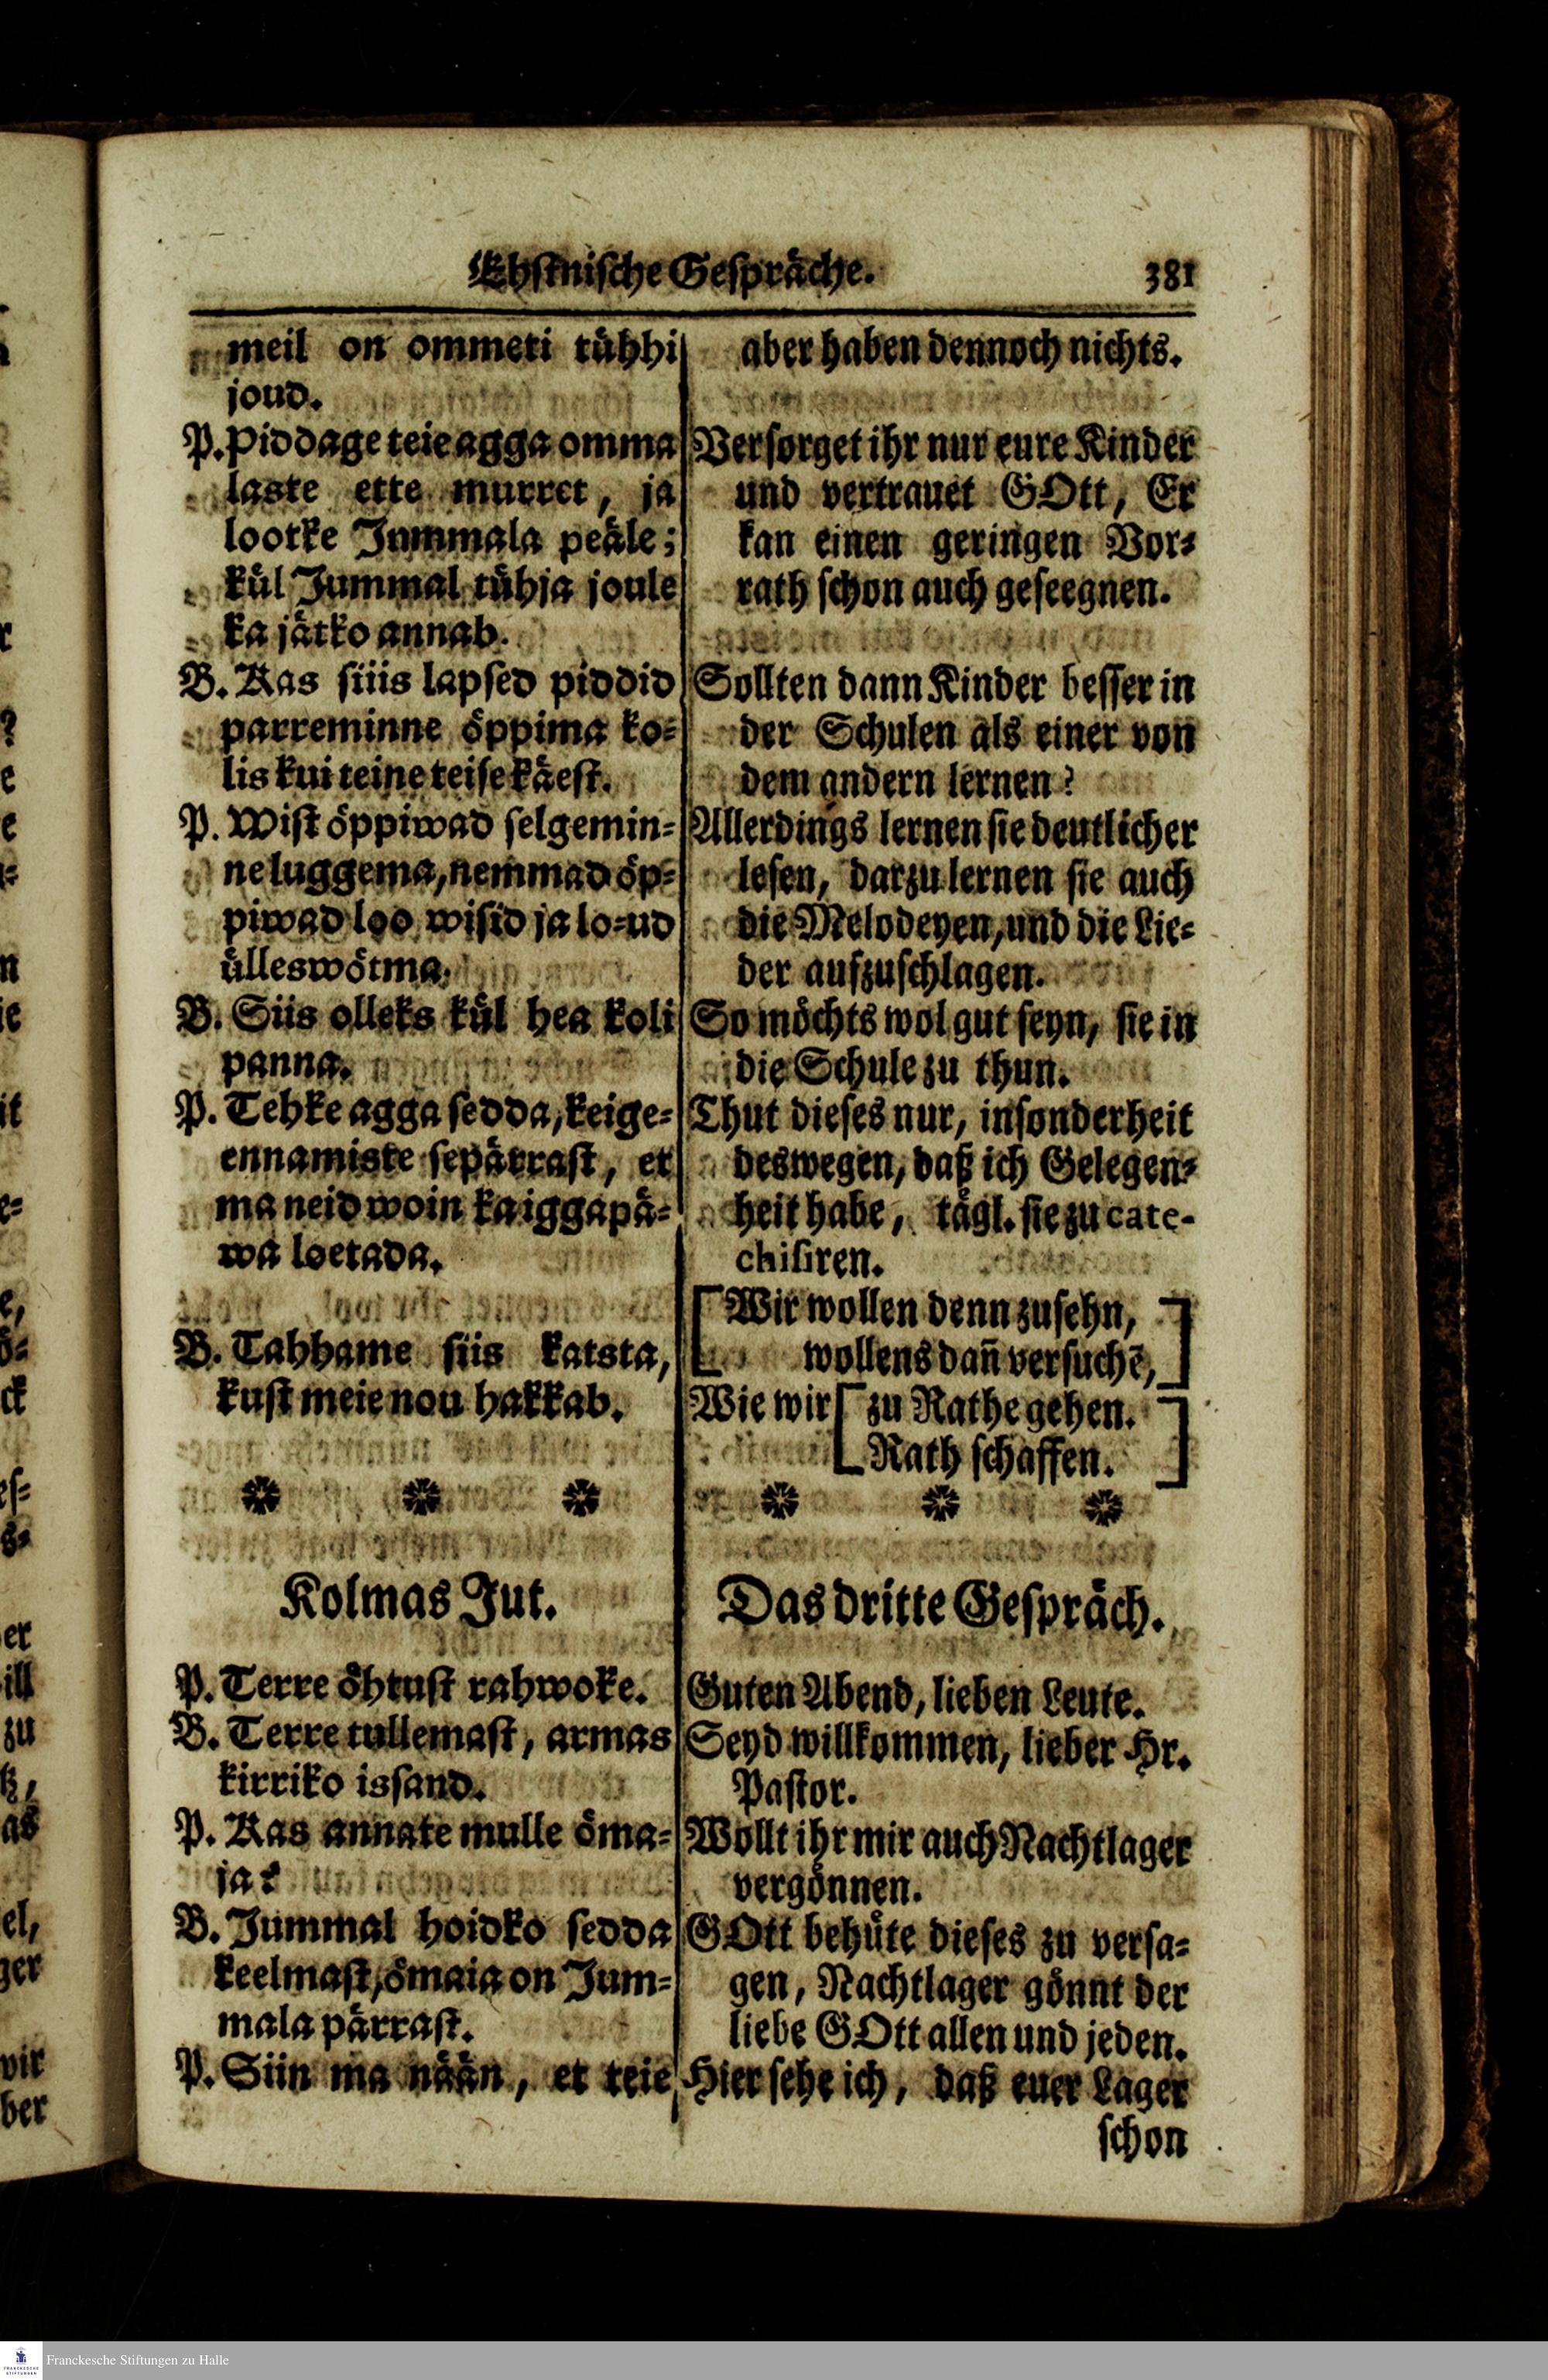 Ehstnische Gespräche. 381
meil on ommeti tühhi
joud.
P. Piddage teie agga omma
laste ette murret, ja
lootke Jummala peäle;
kül Jummal tühja joule
ka jätko annab.
B. Kas siiis lapsed piddid
parreminne öppima ko-
lis kui teine teise käest.
P. Wist öppiwad selgemin-
ne luggema, nemmad öp-
piwad loo wisid ja lo-ud
ülleswötma.
B. Siis olleks kül hea koli
panna.
P. Tehke agga sedda, keige-
ennamiste sepärrast, et
ma neid woin ka iggapä-
wa loetada.
B. Tahhame siis katsta,
kust meie nou hakkab.
Kolmas Jut.
P. Terre öhtust rahwoke.
B. Terre tullemast, armas
kirriko issand.
P. Kas annate mulle öma-
ja?
B. Jummal hoidko sedda
keelmast, ömaia on Jum-
mala pärrast.
P. Siin ma nään, et teie
aber haben dennoch nichts.
Versorget ihr nur eure Kinder
und vertrauet GOtt, Er
kan einen geringen Vor-
rath schon auch geseegnen.
Sollten dann Kinder besser in
der Schulen als einer von
dem andern lernen?
Allerdings lernen sie deutlicher
lesen, darzu lernen sie auch
die Melodeyen, und die Lie-
der aufzuschlagen.
So möchts wol gut seyn, sie in
die Schule zu thun.
Thut dieses nur, insonderheit
deswegen, daß ich Gelegen-
heit habe, tägl. sie zu cate-
chisiren.
[Wir wollen denn zusehn,
wollens dañ versuchē,]
Wie wir [zu Rathe gehen.
Rath schaffen.]
Das dritte Gespräch.
Guten Abend, lieben Leute.
Seyd willkommen, lieber Hr.
Pastor.
Wollt ihr mir auch Nachtlager
vergönnen.
GOtt behüte dieses zu versa-
gen, Nachtlager gönnt der
liebe GOtt allen und jeden.
Hier sehe ich, daß euer Lager
schon
Franckesche Stiftungen zu Halle